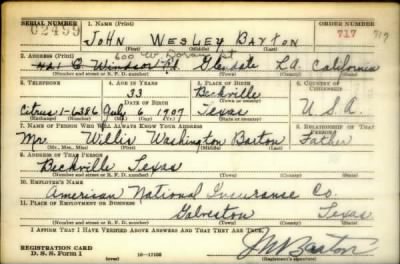 SERIAL NUMBER 1. NAME (Print) ORDER NUMBER
02499 JOHN WESLEY BARTON 717 717
(First) (Middle) (Last)
600 W Doran St
2. ADDRESS (Print)
421 E Windsor Rd. Glendale L.A. California
(Number and street or R. F. D. number) (Town) (County) (State)
3. TELEPHONE 4. AGE IN YEARS 5. PLACE OF BIRTH 6. COUNTRY OF CITIZENSHIP
33 Beckville
DATE OF BIRTH (Town or county)
Citrus 1-6386 July 6 1907 Texas U.S.A.
(Exchange) (Number) (Mo.) (Day) (Yr.) (State or country)
7. NAME OF PERSON WHO WILL ALWAYS KNOW YOUR ADDRESS 8. RELATIONSHIP OF THAT PERSON
Mr. Willis Washington Barton Father
(Mr., Mrs., Miss) (First) (Middle) (Last)
9. ADDRESS OF THAT PERSON
Beckville Texas
(Number and street or R. F. D. number) (Town) (County) (State)
10. EMPLOYER'S NAME
American National Insurance Co.
11. PLACE OF EMPLOYMENT OR BUSINESS
Galveston Texas
(Number and street or R. F. D. number) (Town) (County) (State)
I AFFIRM THAT I HAVE VERIFIED ABOVE ANSWERS AND THAT THEY ARE TRUE.
REGISTRATION CARD
D. S. S. Form 1 16-17105 J W Barton
(over) (Registrant's signature)